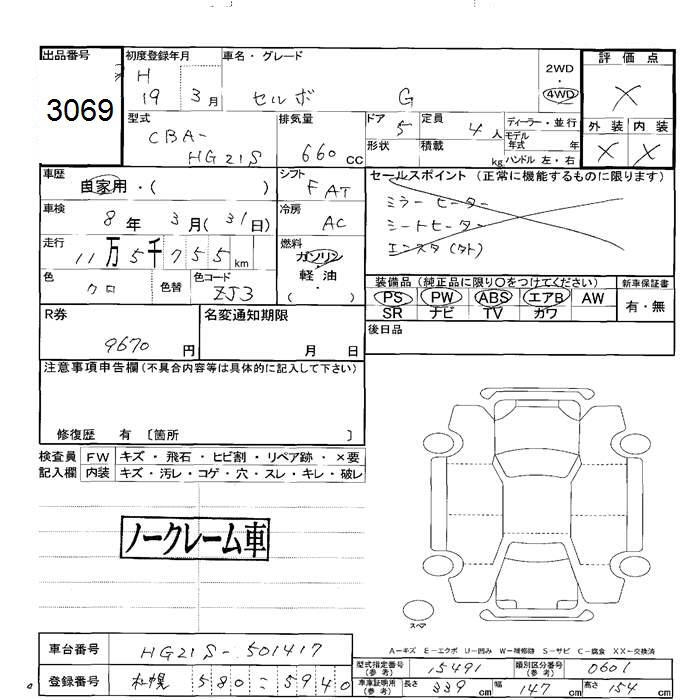 出品番号
3069
初度登録年月
H
19 3月
車名・グレード
セルボ G
2WD
・
4WD
評価点
X
外装 内装
X X
型式
CBA-
HG21S
排気量
660cc
ドア 5
形状
定員 4人
積載 kg
ディーラー・並行
モデル
年式 年
ハンドル 左・右
車歴
自家用・( )
シフト
FAT
セールスポイント (正常に機能するものに限ります)
ミラーヒーター
シートヒーター
エンスタ(タト)
車検
8年 3月(31日)
冷房
AC
走行
11万5千755km
燃料
ガソリン
・
軽油
・
( )
色
クロ
色替
色コード
ZJ3
装備品 (純正品に限り○をつけてください)
PS PW ABS エアB AW
SR ナビ TV カワ
新車保証書
有・無
R券
9670円
名変通知期限
月 日
後日品
注意事項申告欄 (不具合内容等は具体的に記入して下さい)
修復歴 有 〔箇所 〕
検査員 FW キズ・飛石・ヒビ割・リペア跡・×要
記入欄 内装 キズ・汚レ・コゲ・穴・スレ・キレ・破レ
ノークレーム車
スペア
A-キズ E-エクボ U-凹み W-補修跡 S-サビ C-腐食 XX-交換済
車台番号 HG21S-501417
登録番号 札幌 580 ニ 5940
型式指定番号
(参考)
15491
類別区分番号
(参考)
0601
車庫証明用
(参考)
長さ 339cm 幅 147cm 高さ 154cm